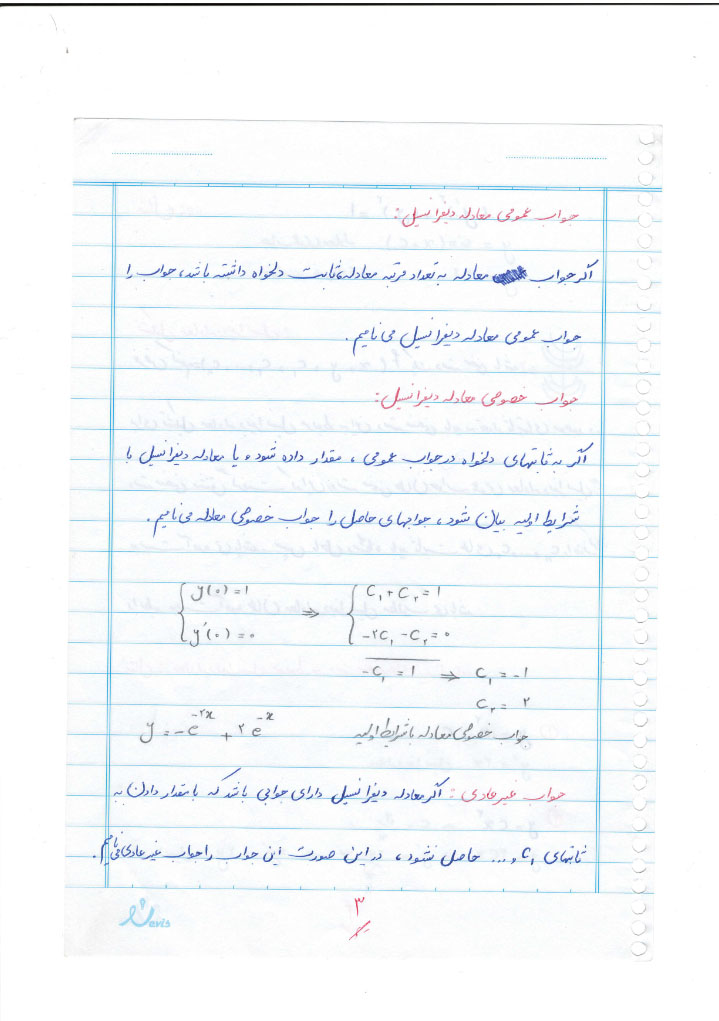 جواب عمومی معادله دیفرانسیل:
اگر جواب معادله به تعداد مرتبه معادله، ثابت دلخواه داشته باشد، جواب را
جواب عمومی معادله دیفرانسیل می نامیم.
جواب خصوصی معادله دیفرانسیل:
اگر به ثابتهای دلخواه در جواب عمومی، مقدار داده شود و یا معادله دیفرانسیل با
شرایط اولیه بیان شود، جوابهای حاصل را جواب خصوصی معادله می نامیم.
{ y(۰) = ۱ ⇒ { C₁ + C₂ = ۱
y'(۰) = ۰ -۲C₁ - C₂ = ۰
-C₁ = ۱ ⇒ C₁ = -۱
C₂ = ۲
جواب خصوصی معادله با شرایط اولیه y = -e^{-۲x} + ۲e^{-x}
جواب غیر عادی: اگر معادله دیفرانسیل دارای جوابی باشد که با مقدار دادن به
ثابتهای C₁ و ... حاصل نشود، در این صورت این جواب را جواب غیر عادی می نامیم.
۳
Nevis